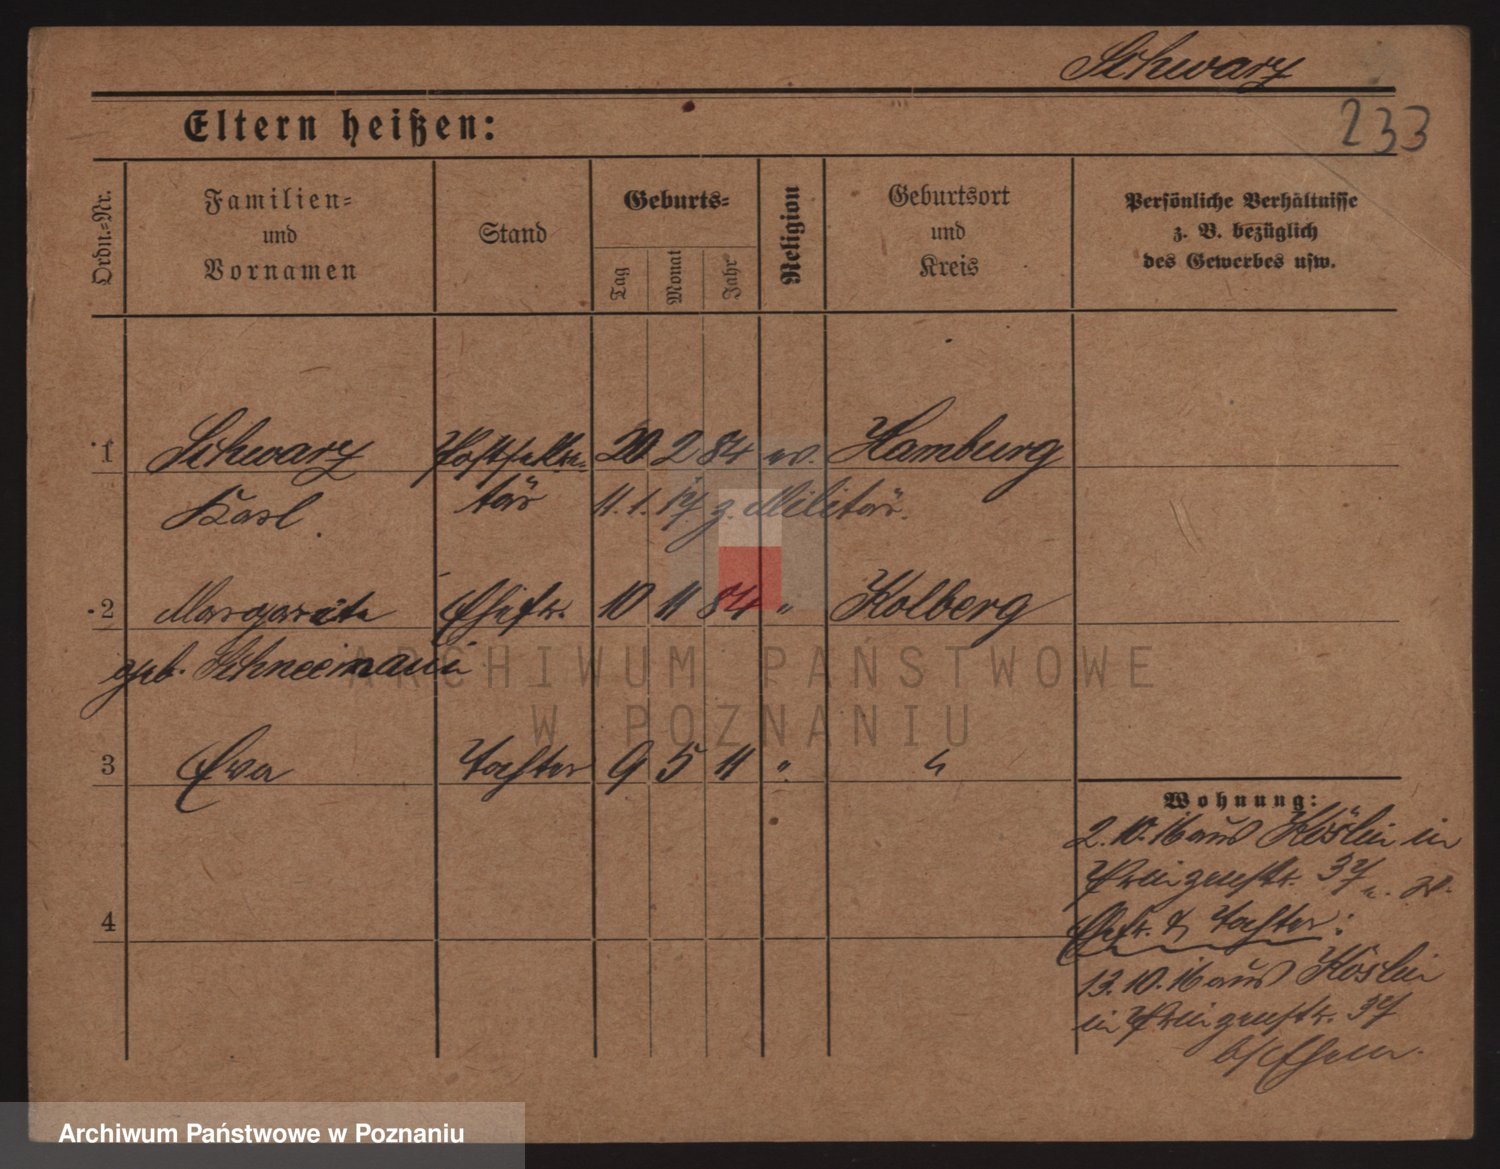 Schwarz
233
Eltern heißen:
Ordn.-Nr.
Familien- und Vornamen
Stand
Geburts-
Tag
Monat
Jahr
Religion
Geburtsort und Kreis
Persönliche Verhältnisse
z. B. bezüglich
des Gewerbes usw.
1 Schwarz Postsekre- 20 2 84 ev. Hamburg
Karl tär 11. 1. 17 z. Militär.
2 Margarete Ehefr. 10 11 84 " Kolberg
geb. Schneemann
3 Eva Tochter 9 5 11 " "
4
Wohnung:
2.10.16 aus Köslin in
Prinzenstr. 37
Ehefr. & Tochter:
13.10.16 aus Köslin
in Prinzenstr. 37
b/Ehem.
ARCHIWUM PAŃSTWOWE
W POZNANIU
Archiwum Państwowe w Poznaniu